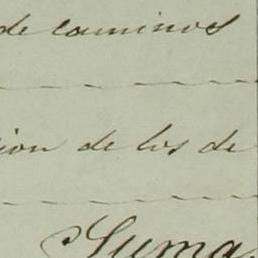 de caminos
ion de los de
Suma